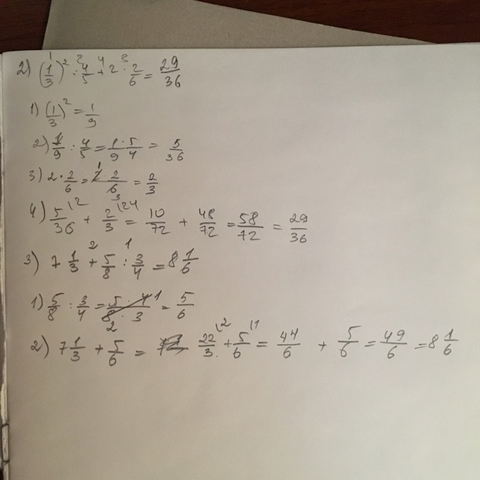 2) (1/3)² : 4/5 + 2 · 2/6 = 29/36
1) (1/3)² = 1/9
2) 1/9 : 4/5 = 1 · 5/9 · 4 = 5/36
3) 2 · 2/6 = 2 · 2/6 = 2/3
4) 5/36 \2 + 2/3 \24 = 10/72 + 48/72 = 58/72 = 29/36
3) 7 1/3 + 5/8 : 3/4 = 8 1/6
1) 5/8 : 3/4 = 5 · 4/8 · 3 = 5/6
2) 7 1/3 + 5/6 = 22/3 \2 + 5/6 \1 = 44/6 + 5/6 = 49/6 = 8 1/6